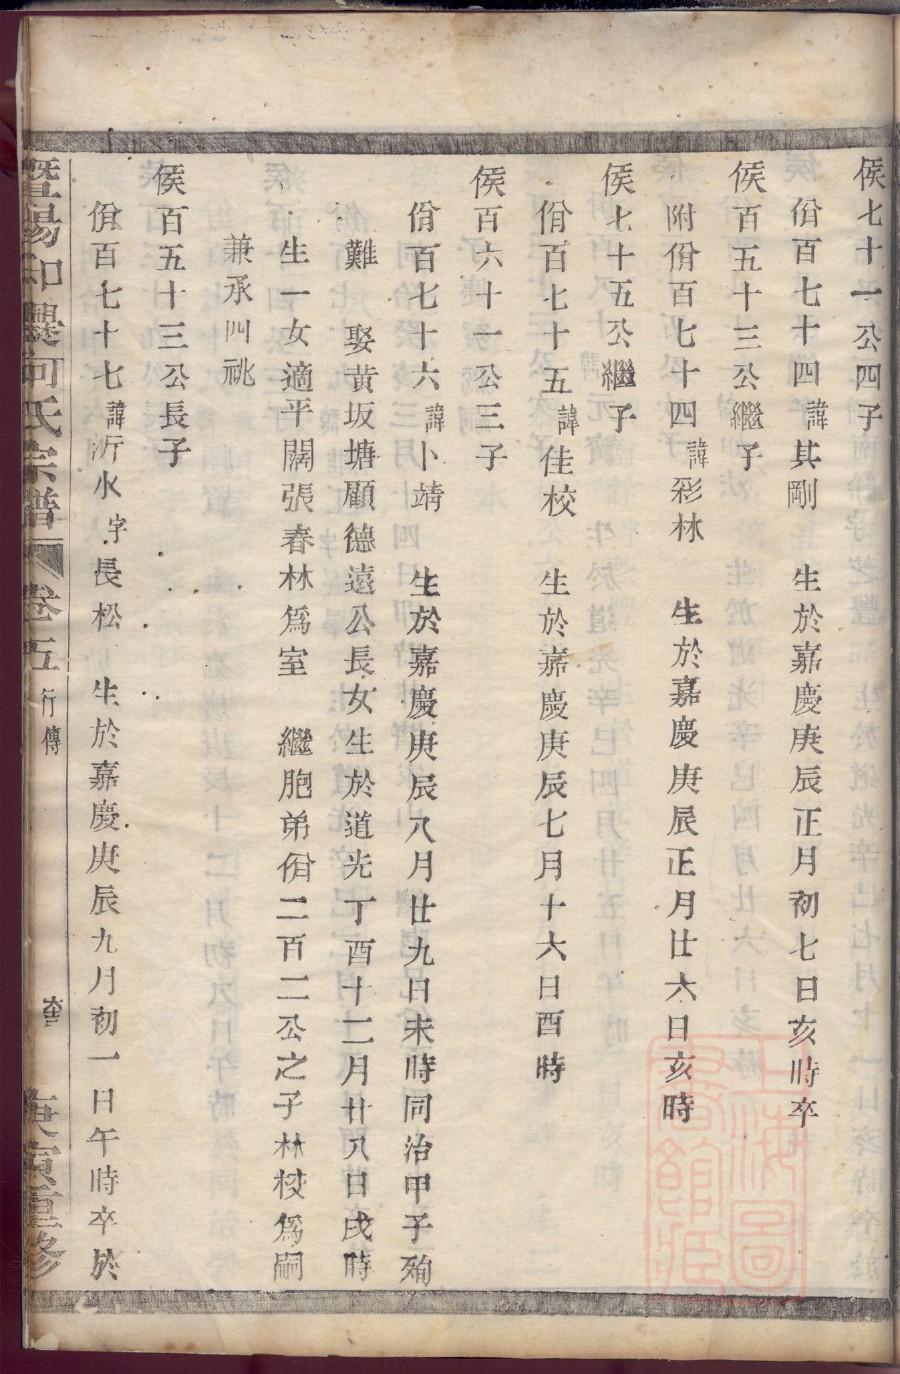 侯七十一公四子
佾百七十四諱其剛　生於嘉慶庚辰正月初七日亥時卒
侯百五十三公繼子
附佾百七十四諱彩林　生於嘉慶庚辰正月廿六日亥時
侯七十五公繼子
佾百七十五諱佳校　生於嘉慶庚辰七月十六日酉時
侯百六十一公三子
佾百七十六諱卜靖　生於嘉慶庚辰八月廿九日未時同治甲子殉
難　娶黄坂塘顧德遠公長女生於道光丁酉十二月廿八日戌時
生一女適平闊張春林爲室　繼胞弟佾二百二公之子林校爲嗣
兼承四祧
侯百五十三公長子
佾百七十七諱沂水字長松　生於嘉慶庚辰九月初一日午時卒於
暨陽和㸑何氏宗譜　卷五　行傳　庚寅重修
上海圖書館